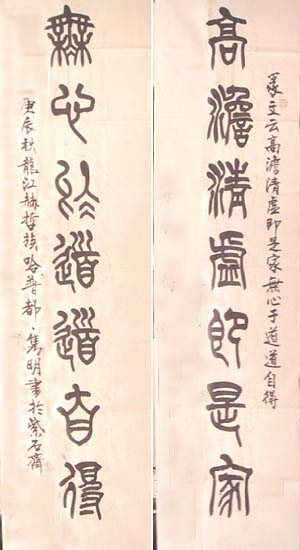 篆文云高澹清虚即是家無心于道道自得
高澹清虛即是家
無心於道道自得
庚辰秋龍江赫哲族哈普都·雋明書於紫石齋